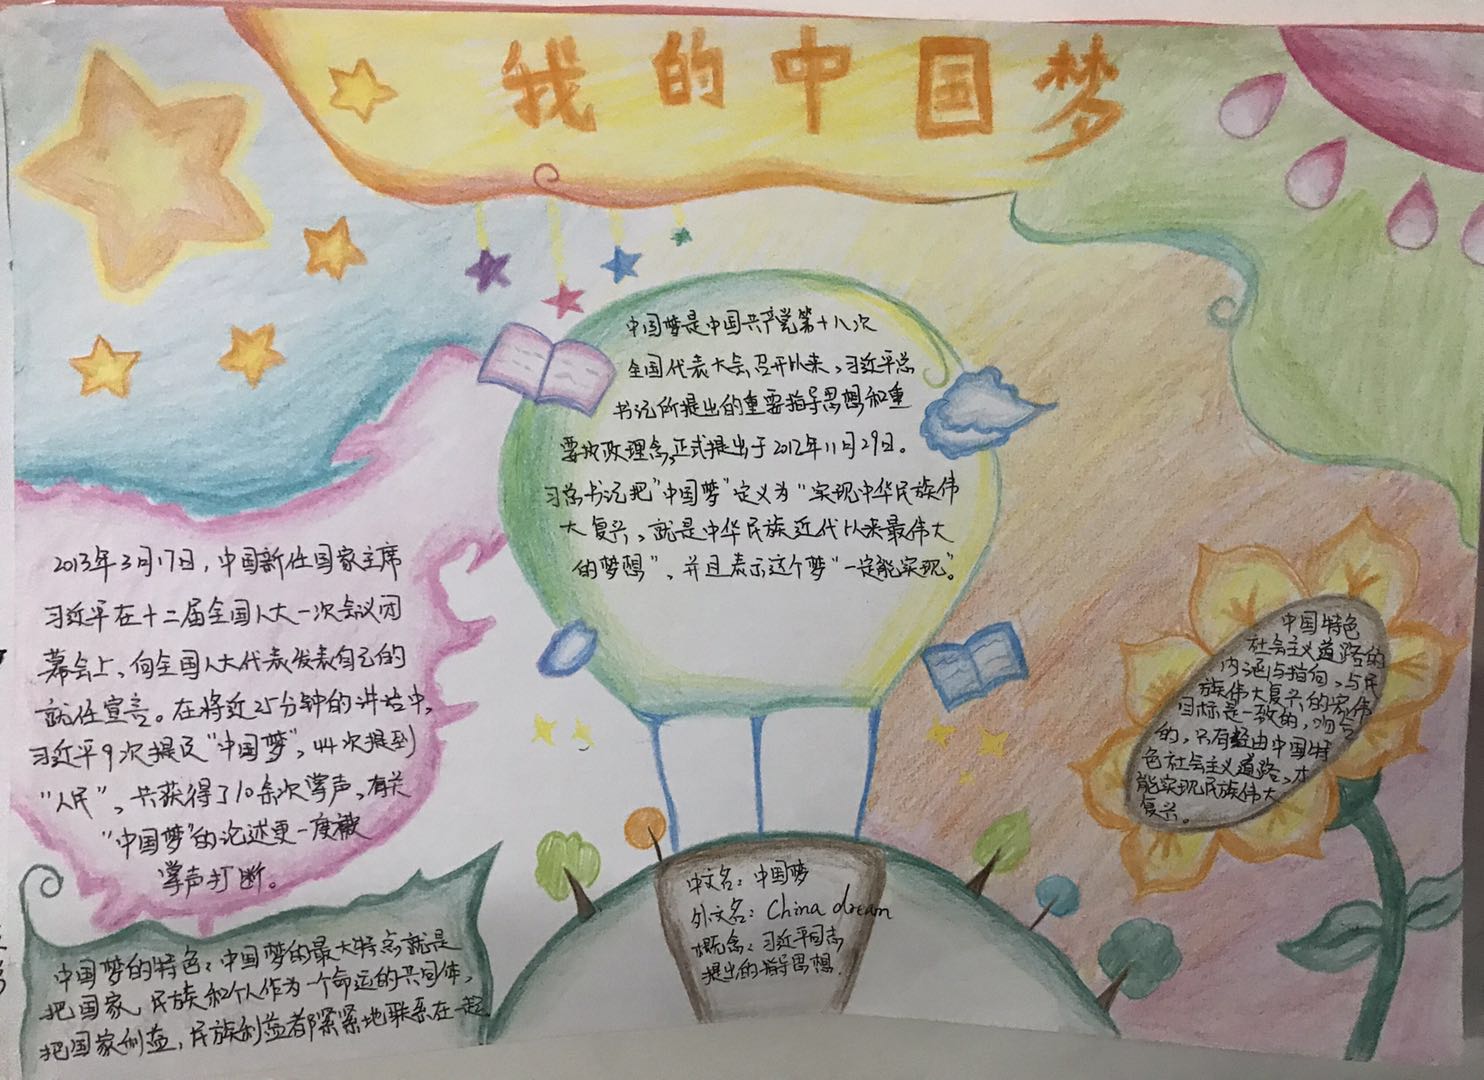 我的中国梦
中国梦是中国共产党第十八次
全国代表大会召开以来，习近平总
书记所提出的重要指导思想和重
要执政理念，正式提出于2012年11月29日。
习总书记把“中国梦”定义为“实现中华民族伟
大复兴，就是中华民族近代以来最伟大
的梦想”，并且表示这个梦“一定能实现”。
2013年3月17日，中国新任国家主席
习近平在十二届全国人大一次会议闭
幕会上，向全国人大代表发表自己的
就任宣言。在将近25分钟的讲话中，
习近平9次提及“中国梦”，44次提到
“人民”，共获得了10余次掌声，有关
“中国梦”的论述更一度被
掌声打断。
中国特色
社会主义道路的
内涵与指向，与民
族伟大复兴的宏伟
目标是一致的，吻合
的，只有经由中国特
色社会主义道路，才
能实现民族伟大
复兴。
中文名：中国梦
外文名：China dream
概念：习近平同志
提出的指导思想.
中国梦的特色：中国梦的最大特点就是
把国家、民族和个人作为一个命运的共同体，
把国家利益，民族利益都紧紧地联系在一起